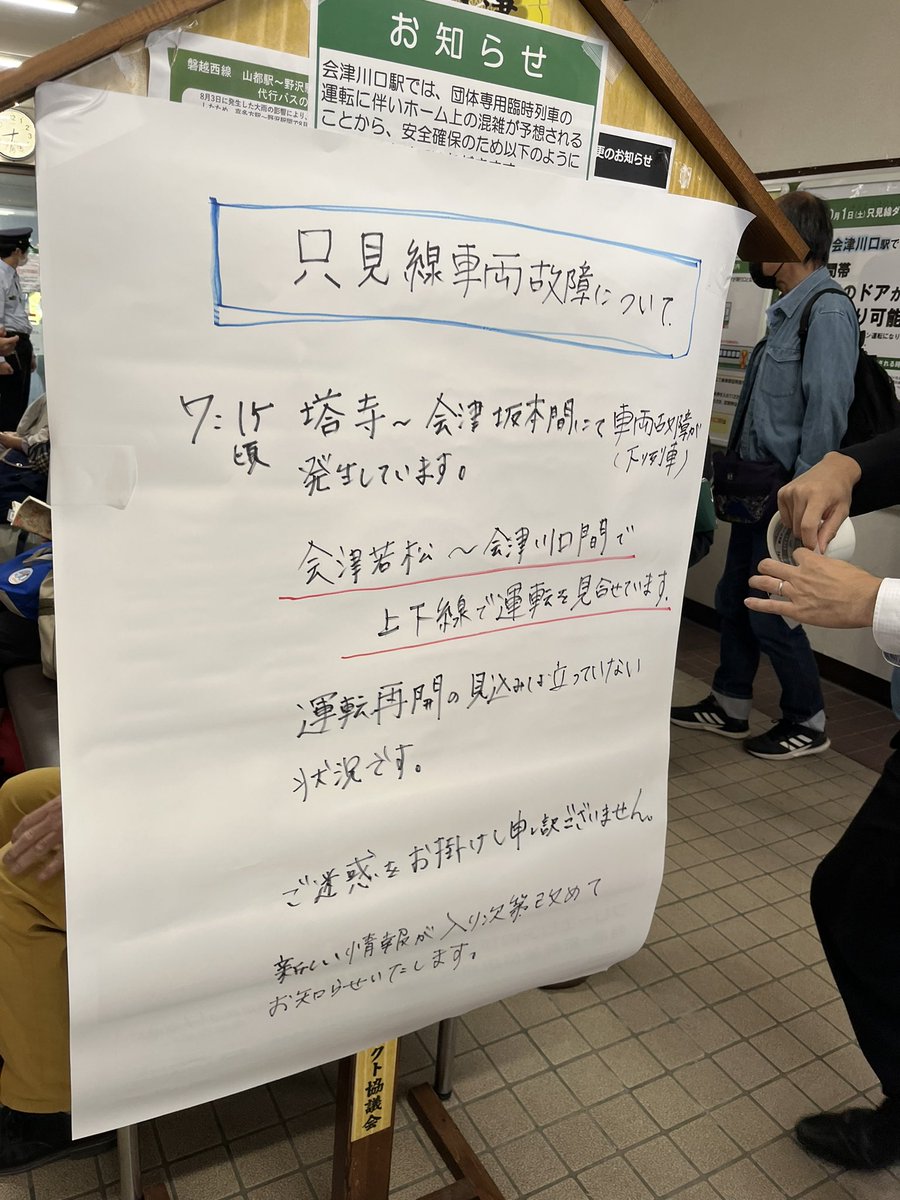 お知らせ
会津川口駅では、団体専用臨時列車の
運転に伴いホーム上の混雑が予想される
ことから、安全確保のため以下のように
磐越西線 山都駅～野沢
代行バスの
8月3日に発生した大雨の影響により、
更のお知らせ
月1日(土)只見線
会津川口駅で
間帯
のドアが
り可能
只見線車両故障について
7:15 塔寺～会津坂本間にて車両故障が
頃 発生しています。 (下り列車)
会津若松～会津川口間で
上下線で運転を見合せています。
運転再開の見込みは立っていない
状況です。
ご迷惑をお掛けし申し訳ございません。
新しい情報が入り次第改めて
お知らせいたします。
クト協議会